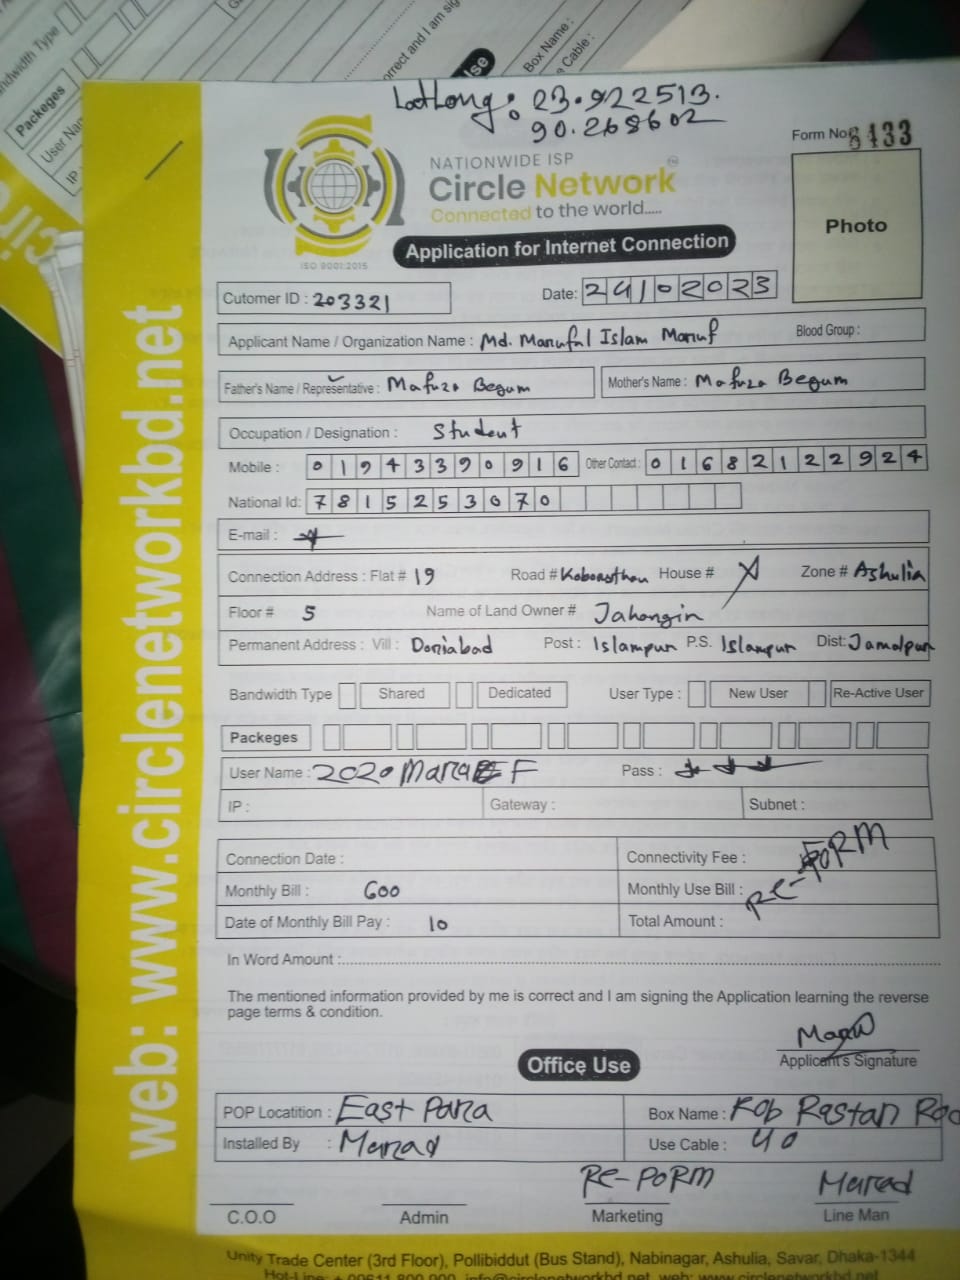 LatLong: 23.922513.
90.268602
Form No 6433
NATIONWIDE ISP
Circle Network
Connected to the world.....
ISO 9001:2015
Application for Internet Connection
Photo
Cutomer ID : 203321
Date: 24102023
Applicant Name / Organization Name : Md. Maruful Islam Maruf Blood Group :
Father's Name / Representative : Mafuza Begum Mother's Name : Mafuza Begum
Occupation / Designation : Student
Mobile : 01943390916 Other Contact : 01682122924
National Id: 7815253070
E-mail :
Connection Address : Flat # 19 Road # Koboasthan House # X Zone # Ashulia
Floor # 5 Name of Land Owner # Jahangir
Permanent Address : Vill : Doriabad Post : Islampur P.S. Islampur Dist: Jamalpur
Bandwidth Type Shared Dedicated User Type : New User Re-Active User
Packeges
User Name : Pass :
IP : Gateway : Subnet :
Connection Date : Connectivity Fee :
RE-FORM
Monthly Bill : 600 Monthly Use Bill :
Date of Monthly Bill Pay : 10 Total Amount :
In Word Amount :
The mentioned information provided by me is correct and I am signing the Application learning the reverse
page terms & condition.
Applicant's Signature
Office Use
POP Locatition : East Para Box Name :
Installed By : Marad Use Cable : 40
RE-FORM Marad
C.O.O Admin Marketing Line Man
Unity Trade Center (3rd Floor), Pollibiddut (Bus Stand), Nabinagar, Ashulia, Savar, Dhaka-1344
web: www.circlenetworkbd.net
Bandwidth Type
Packeges
User Name
IP :
Box Name :
Cable :